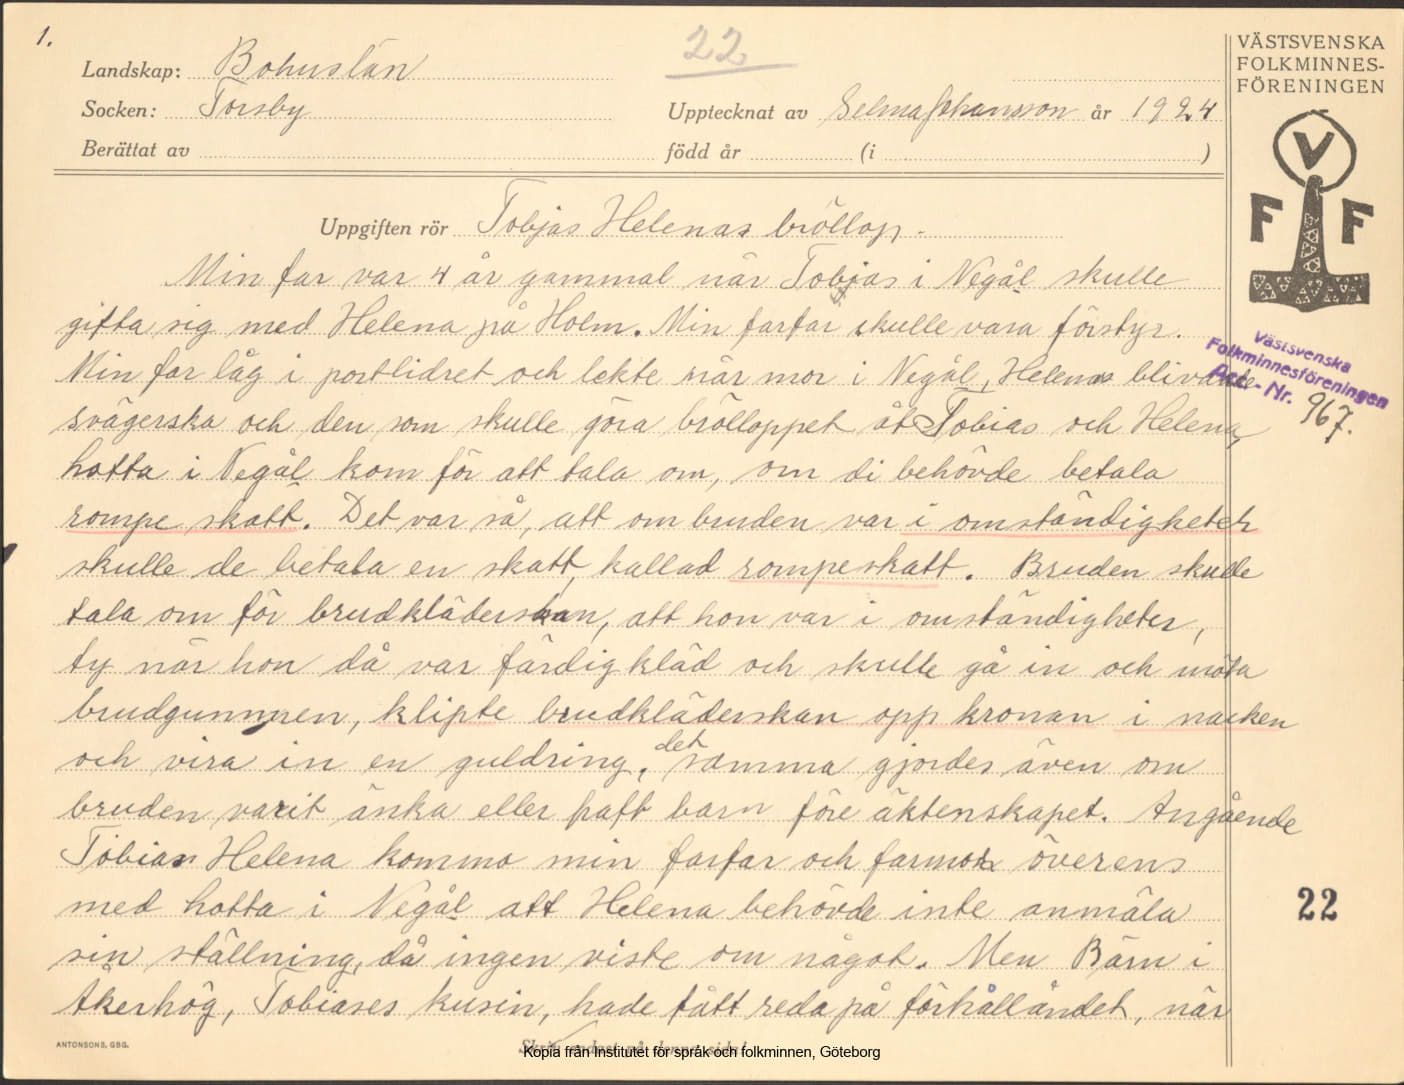 1.
22
VÄSTSVENSKA
FOLKMINNES-
FÖRENINGEN
Landskap: Bohuslän
Socken: Torsby
Upptecknat av Selma Johansson år 1924
Berättat av
född år (i )
V
F F
Uppgiften rör Tobjas Helenas bröllop.
Min far var 4 år gammal när Tobjas i Negål skulle
gifta sig med Helena på Holm. Min farfar skulle vara förstyr.
Västsvenska
Folkminnesföreningen
Acc.-Nr. 967.
Min far låg i portlidret och lekte när mor i Negål, Helenas blivande
svägerska och den som skulle göra brölloppet åt Tobias och Helena,
hotta i Negål kom för att tala om, om di behövde betala
rompe skatt. Det var så, att om bruden var i omständigheter
skulle de betala en skatt, kallad rompeskatt. Bruden skulle
tala om för brudkläderskan, att hon var i omständigheter,
ty när hon då var färdigkläd och skulle gå in och möta
brudgummen, klipte brudkläderskan opp kronan i nacken
och vira in en guldring, det samma gjordes även om
bruden varit änka eller haft barn före äktenskapet. Angående
Tobias Helena kommo min farfar och farmor överens
med hotta i Negål att Helena behövde inte anmäla
sin ställning, då ingen viste om något. Men Bärn i
Åkerhög, Tobiases kusin, hade fått reda på förhållandet, när
22
ANTONSONS, GBG.
Skriv endast på denna sida!
Kopia från Institutet för språk och folkminnen, Göteborg